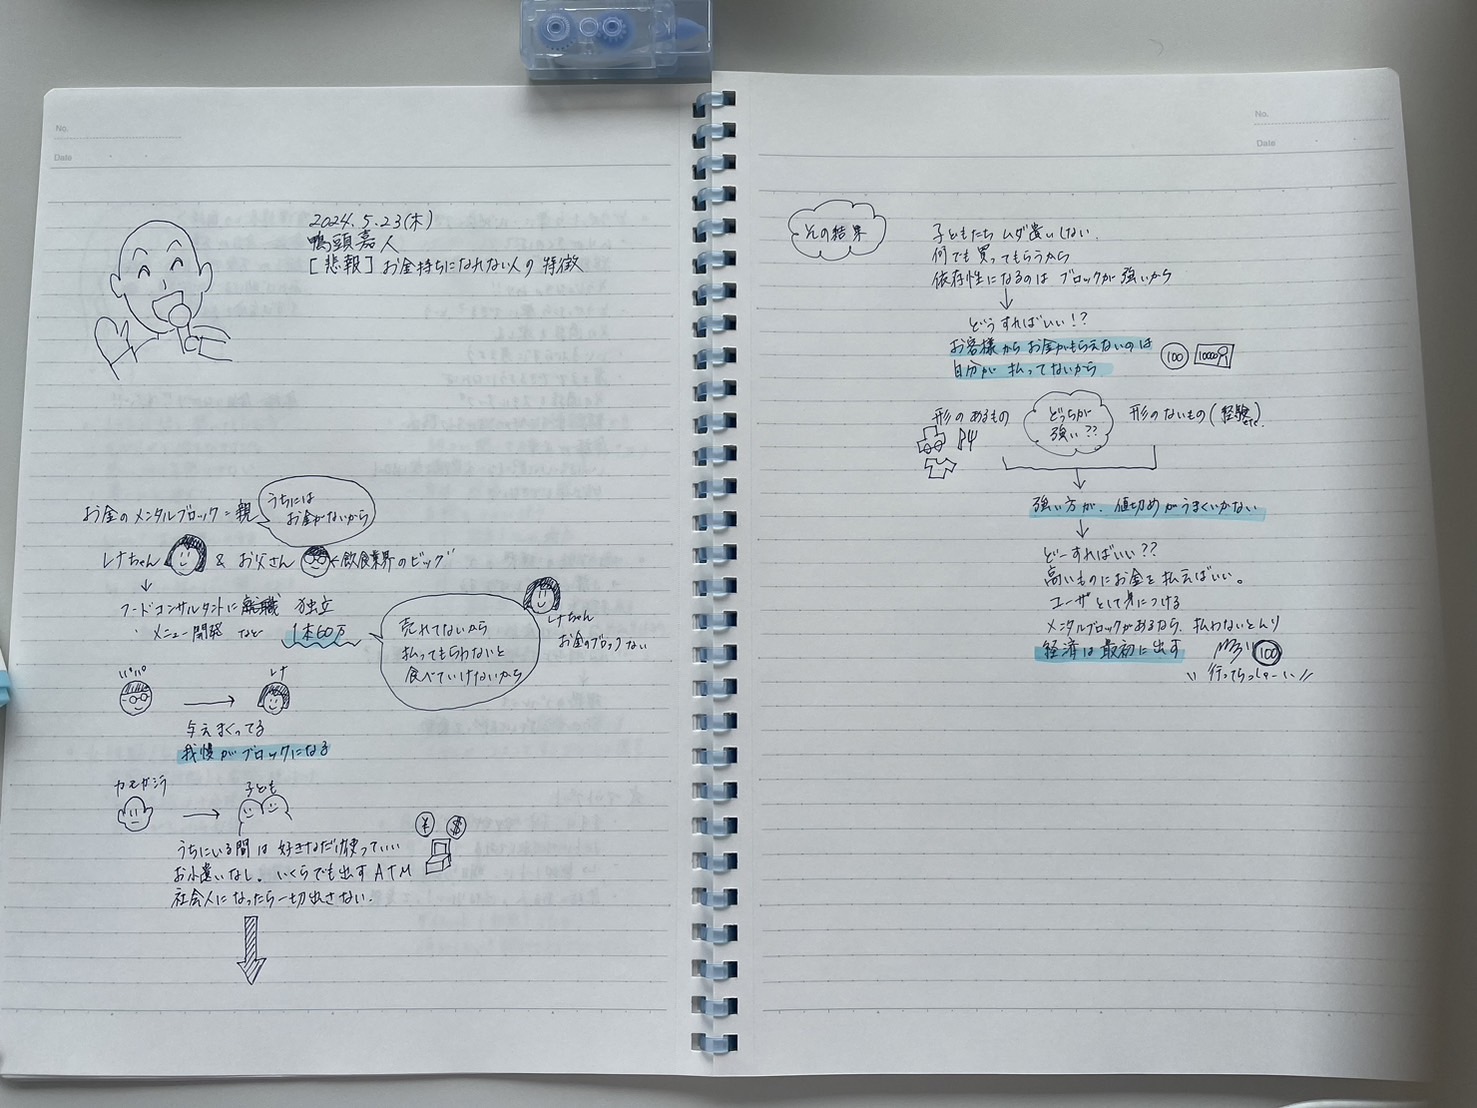 No.
Date
2024.5.23(木)
鴨頭嘉人
[悲報]お金持ちになれない人の特徴
お金のメンタルブロック=親
うちには
お金がないから
レナちゃん & お父さん ←飲食業界のビッグ
↓
フードコンサルタントに就職 独立
・メニュー開発 など 1本60万
売れてないから
払ってもらわないと
食べていけないから
レナちゃん
お金のブロックない
パパ → レナ
与えまくってる
我慢がブロックになる
カモガシラ → 子ども
うちにいる間は好きなだけ使っていい
お小遣いなし、いくらでも出すATM
¥ $
社会人になったら一切出さない.
No.
Date
その結果
子どもたちムダ遣いしない.
何でも買ってもらうから
依存性になるのはブロックが強いから
↓
どうすればいい!?
お客様からお金がもらえないのは
自分が払ってないから
100 10000
形のあるもの どっちが 形のないもの(経験)etc.
強い??
↓
強い方が、値切めがうまくいかない
↓
どーすればいい??
高いものにお金を払えばいい。
ユーザとして身につける
メンタルブロックがあるなら、払わないとムリ
経済は最初に出す
100
\\ 行ってらっしゃーい //